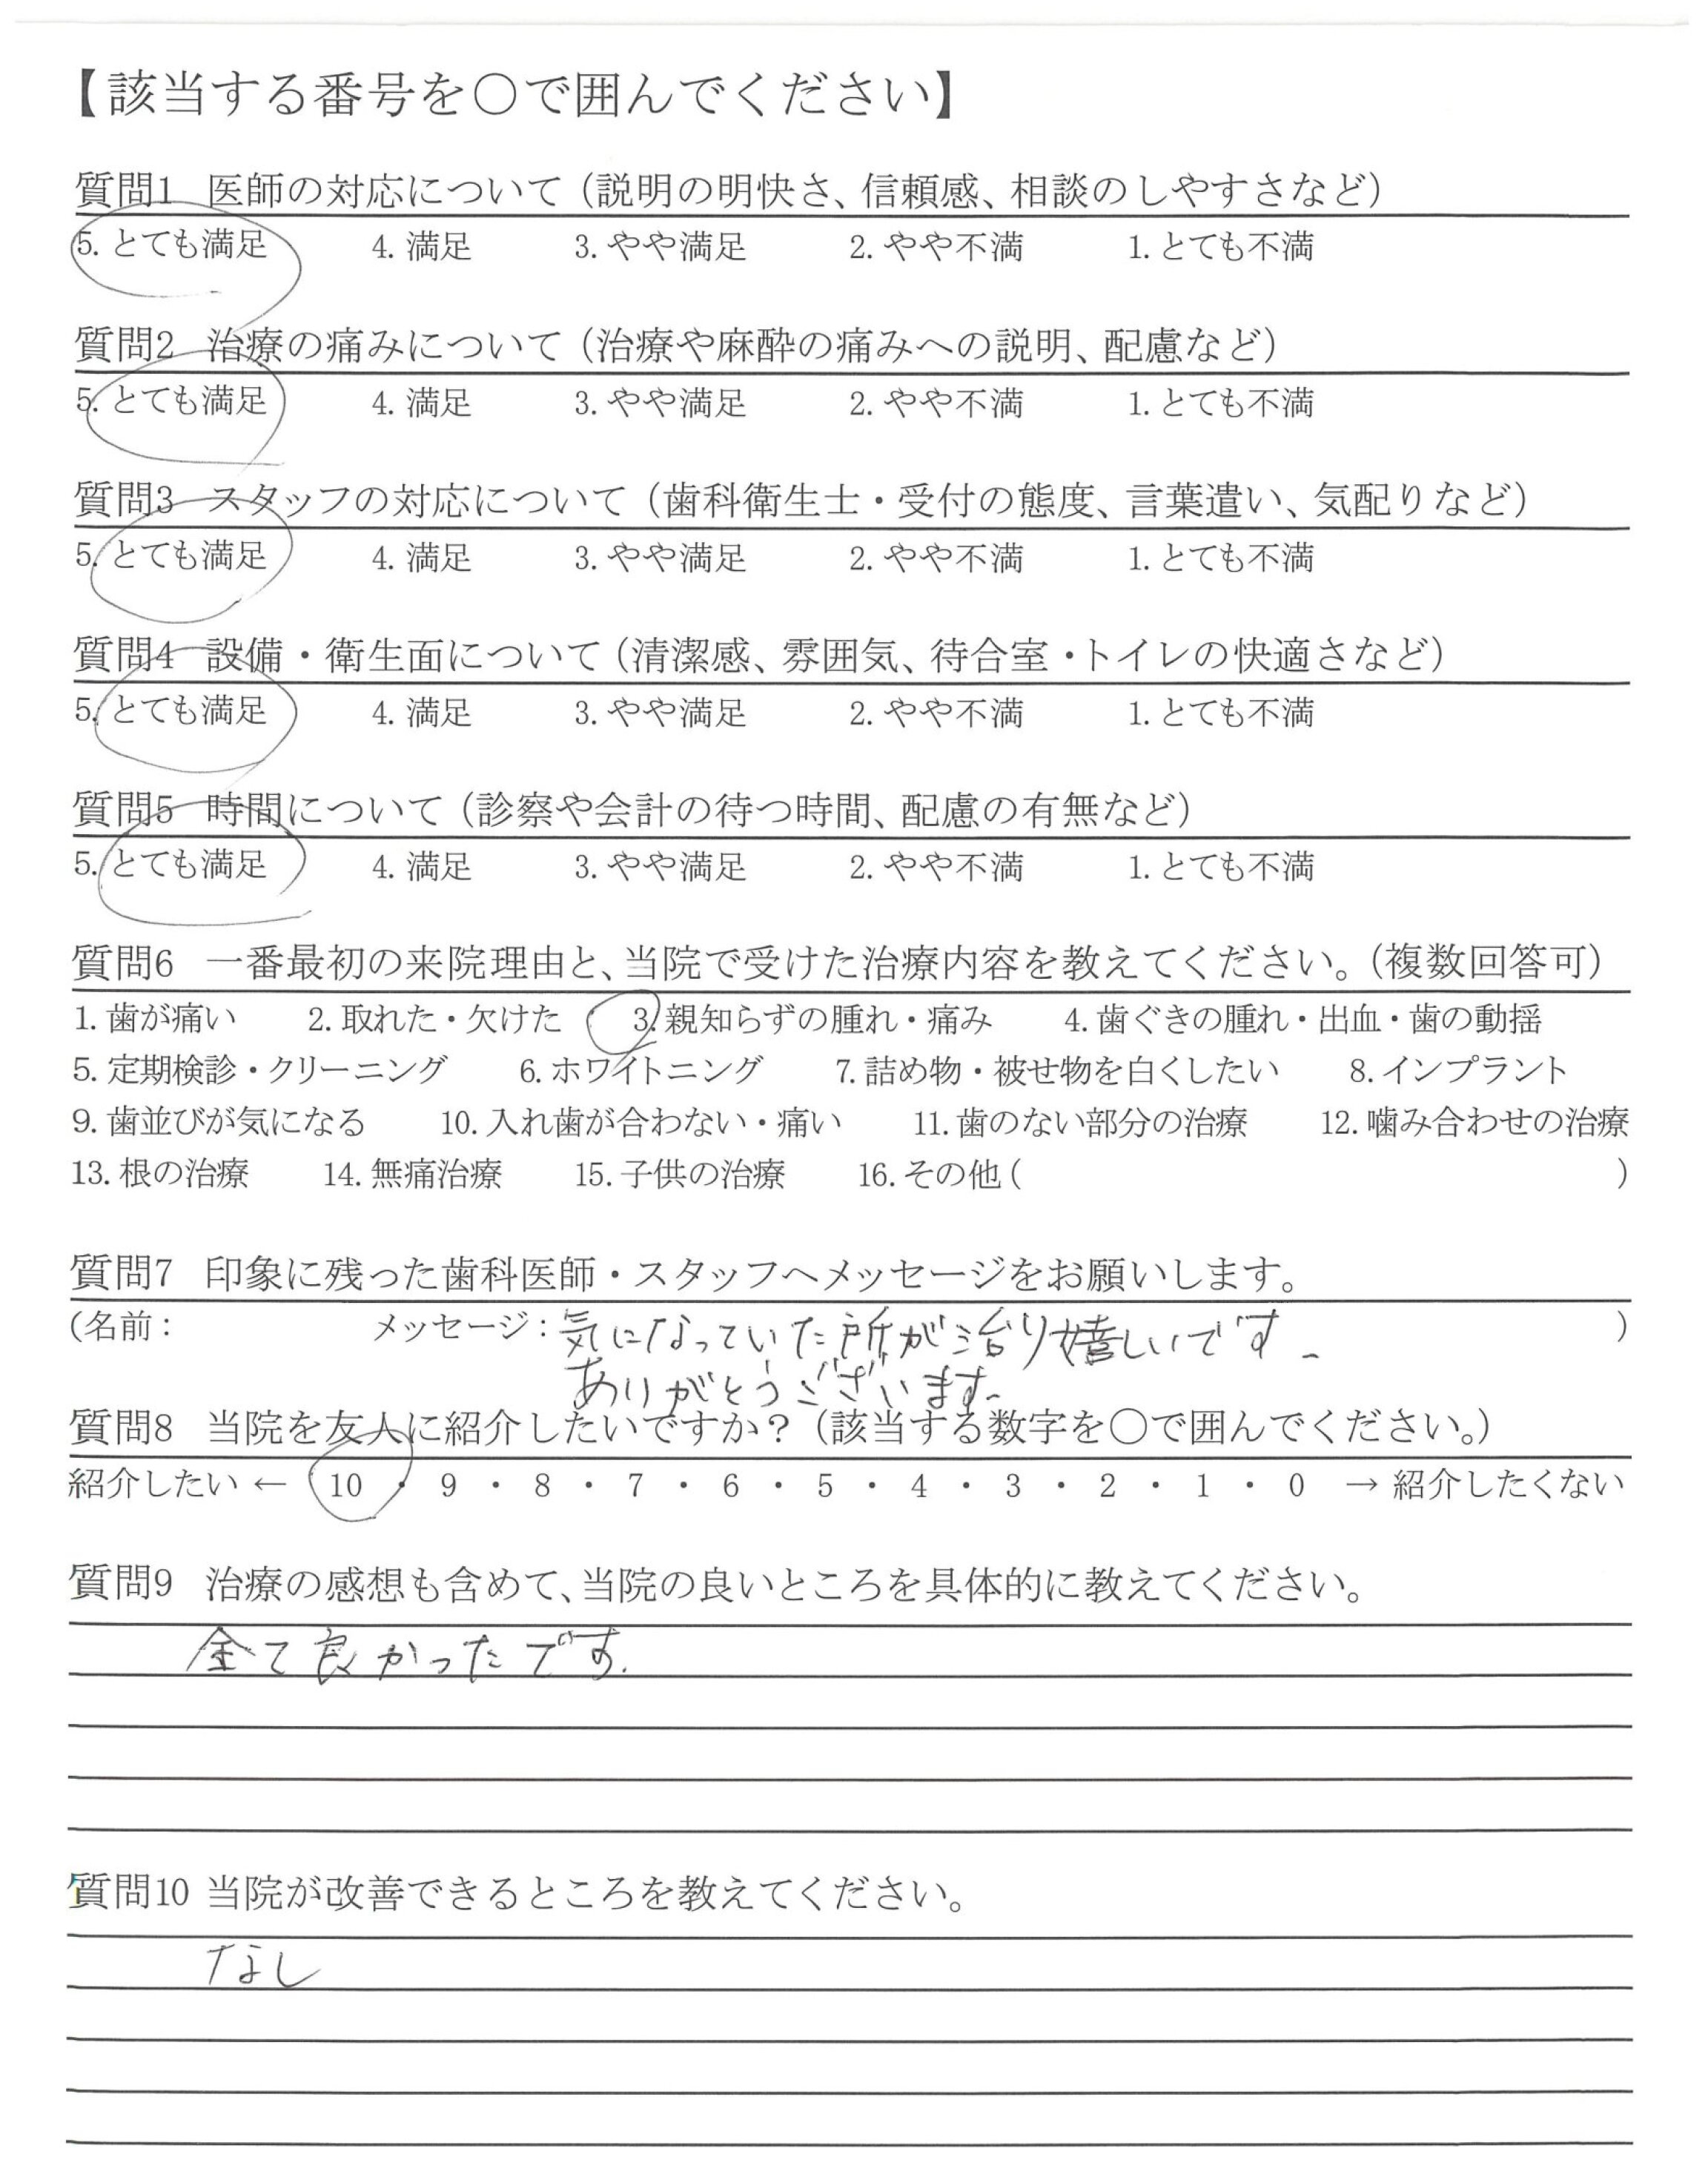 【該当する番号を○で囲んでください】
質問1 医師の対応について（説明の明快さ、信頼感、相談のしやすさなど）
5. とても満足 4. 満足 3. やや満足 2. やや不満 1. とても不満
質問2 治療の痛みについて（治療や麻酔の痛みへの説明、配慮など）
5. とても満足 4. 満足 3. やや満足 2. やや不満 1. とても不満
質問3 スタッフの対応について（歯科衛生士・受付の態度、言葉遣い、気配りなど）
5. とても満足 4. 満足 3. やや満足 2. やや不満 1. とても不満
質問4 設備・衛生面について（清潔感、雰囲気、待合室・トイレの快適さなど）
5. とても満足 4. 満足 3. やや満足 2. やや不満 1. とても不満
質問5 時間について（診察や会計の待つ時間、配慮の有無など）
5. とても満足 4. 満足 3. やや満足 2. やや不満 1. とても不満
質問6 一番最初の来院理由と、当院で受けた治療内容を教えてください。（複数回答可）
1. 歯が痛い 2. 取れた・欠けた 3. 親知らずの腫れ・痛み 4. 歯ぐきの腫れ・出血・歯の動揺
5. 定期検診・クリーニング 6. ホワイトニング 7. 詰め物・被せ物を白くしたい 8. インプラント
9. 歯並びが気になる 10. 入れ歯が合わない・痛い 11. 歯のない部分の治療 12. 噛み合わせの治療
13. 根の治療 14. 無痛治療 15. 子供の治療 16. その他（ ）
質問7 印象に残った歯科医師・スタッフへメッセージをお願いします。
（名前： メッセージ：気になっていた所が治り嬉しいです。 ）
ありがとうございます。
質問8 当院を友人に紹介したいですか？（該当する数字を○で囲んでください。）
紹介したい ← 10 ・ 9 ・ 8 ・ 7 ・ 6 ・ 5 ・ 4 ・ 3 ・ 2 ・ 1 ・ 0 → 紹介したくない
質問9 治療の感想も含めて、当院の良いところを具体的に教えてください。
全て良かったです.
質問10 当院が改善できるところを教えてください。
なし